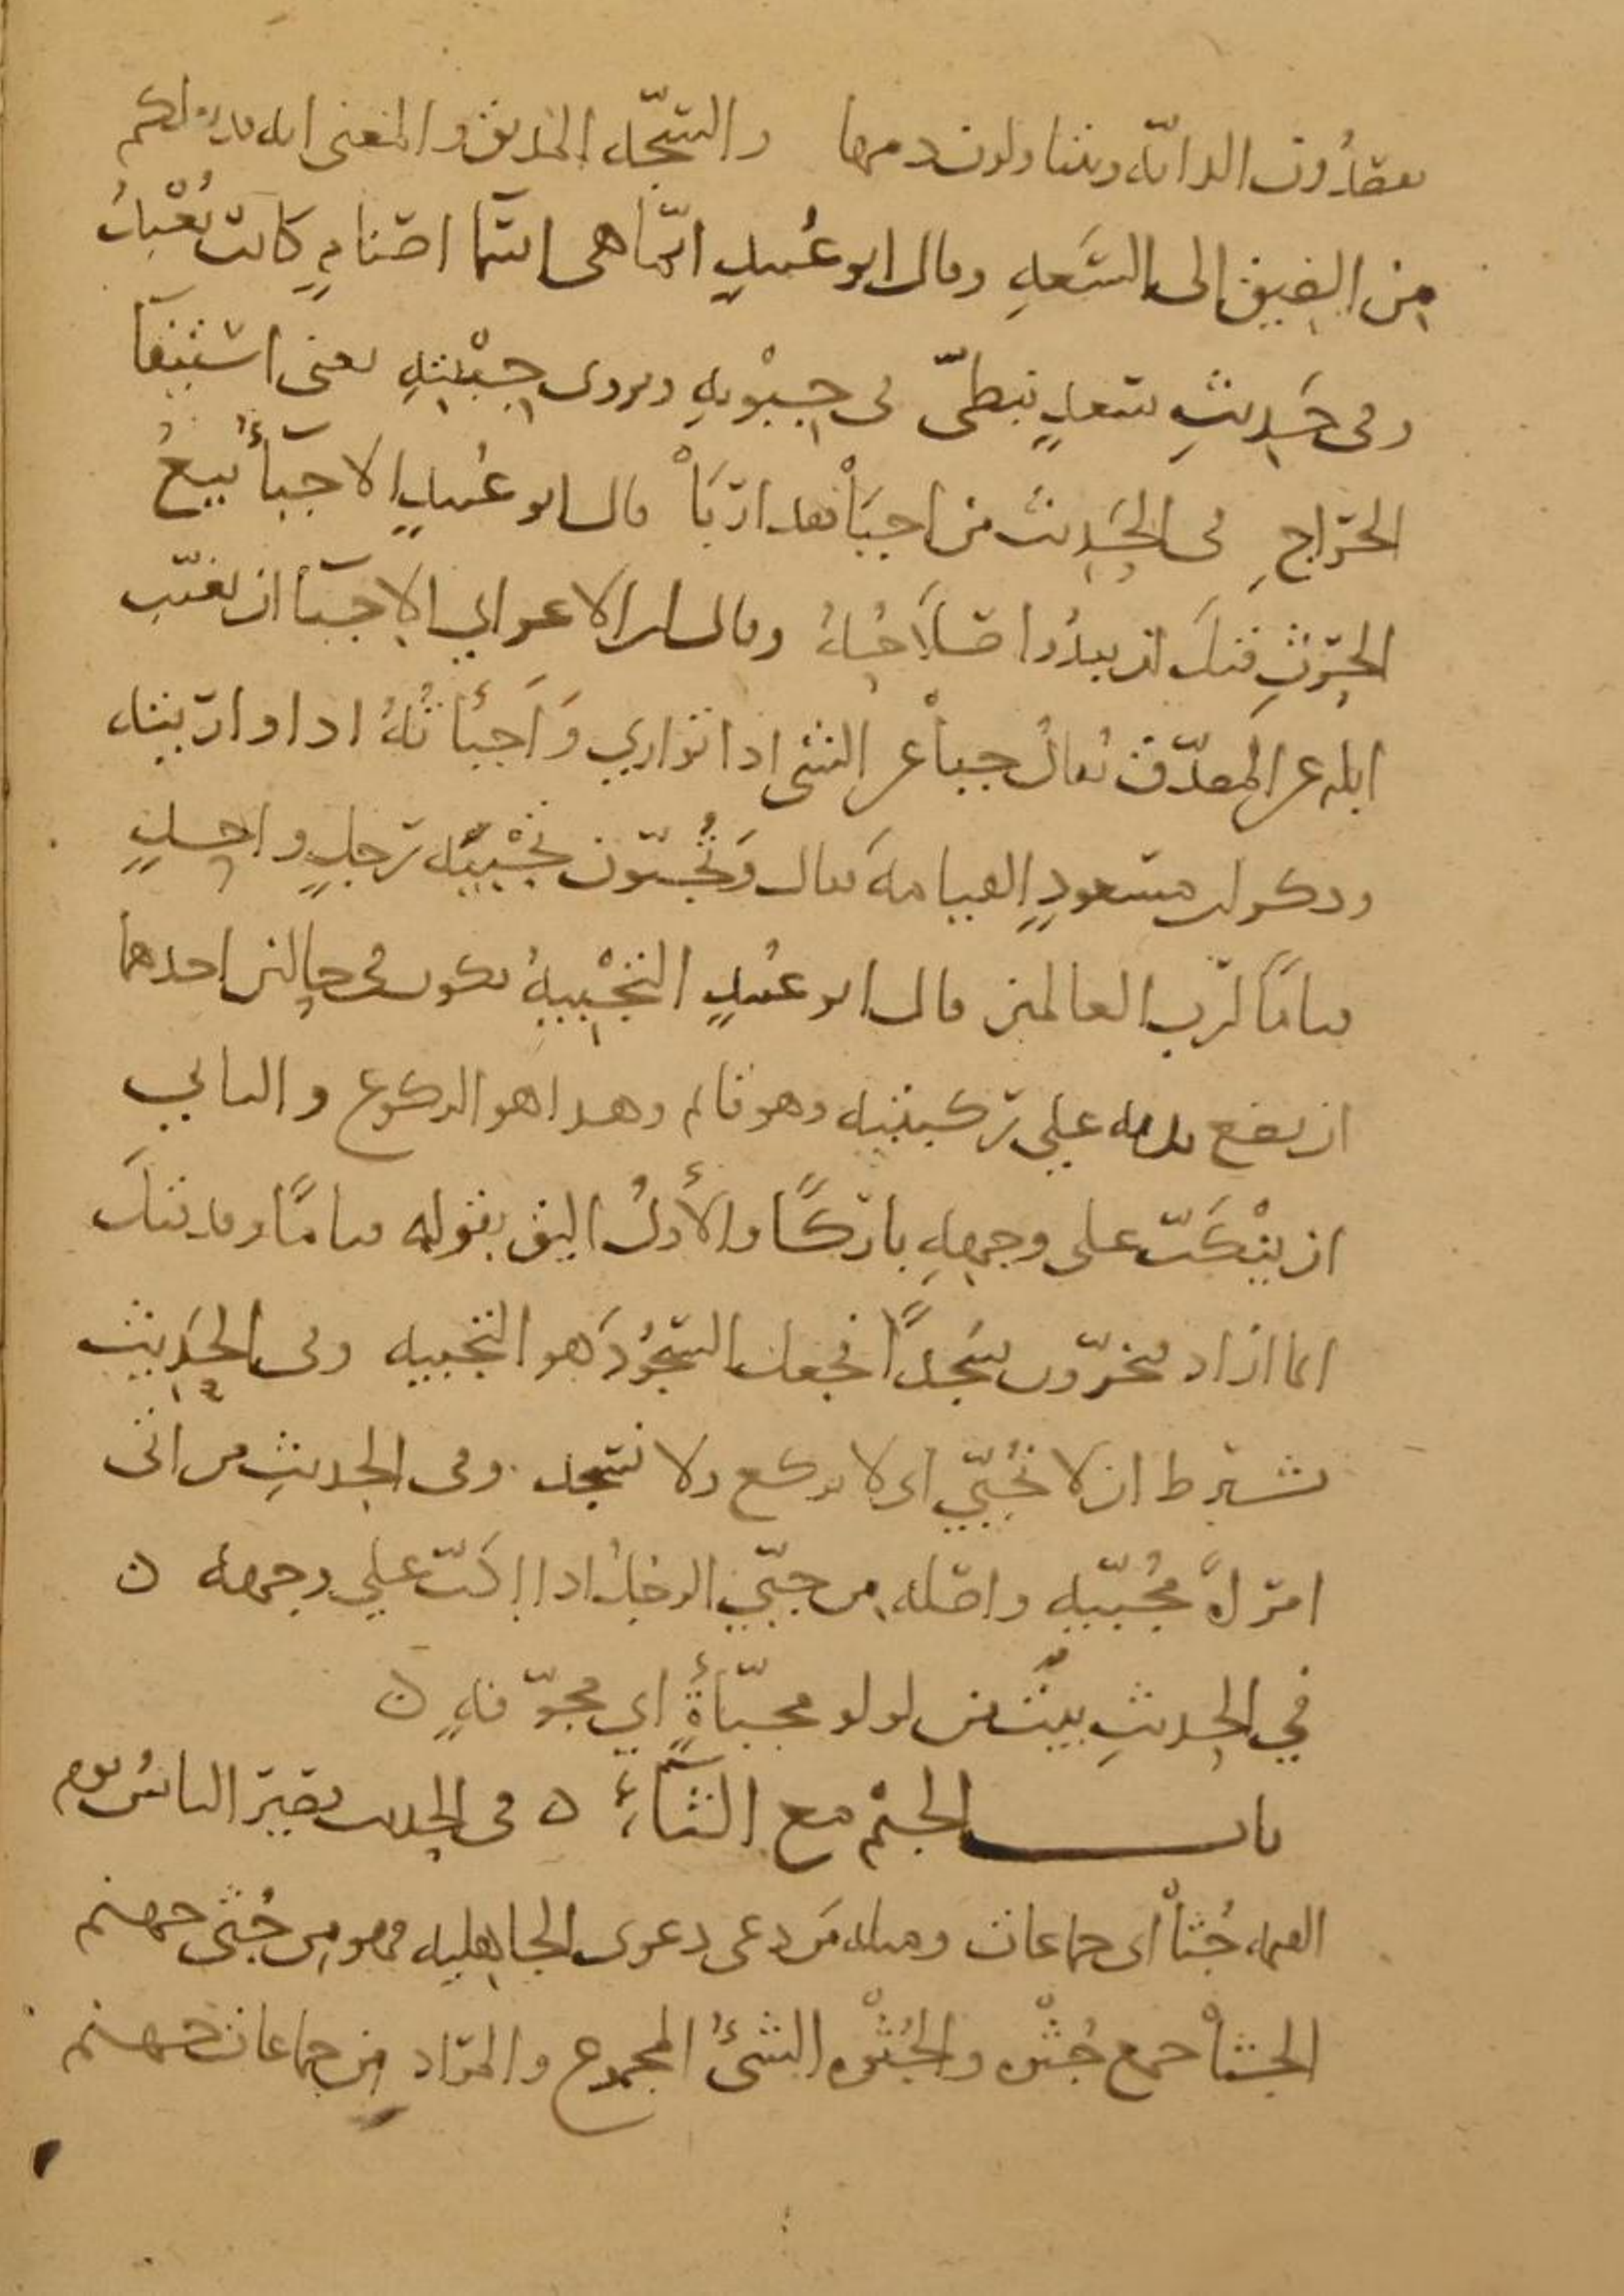 يفصدون الدابّة ويتناولون دمها والسَّجّة المذيق والمعنى انه قد نقلكم
من الضيق الى السَّعةِ وقال ابو عُبيدٍ انّما هى اسما اصنامٍ كانت تُعْبدُ
وفى حَديثِ سَعدٍ نبطىّ فى جِبْوتِهِ ويروى جِبْيتِهِ يعنى استيفآ
الخراجِ فى الحَديث من اجبَأْ فقد اربَأْ قال ابو عُبيدٍ الاجبآء بيعُ
الحرثِ قبلَ ان يبدُوا صَلاحُهُ وقال ابن الاعرابي الاجبآء ان يغيّب
ابله عن المصدّق يُقالُ جبأْ عن الشى اذا توارى وَاَجبأتُهُ اذا واريته
وذكر ابن مسعودٍ القيامةَ فقال وَيُجَبّون تَجْبِيَة رجلٍ واحدٍ
قيامًا لربّ العالمين قال ابو عُبيدٍ التَجْبِيةُ تكون فى حالين احدهما
ان يضع يديه على ركبتيه وهو قائم وهذا هو الركوع والثاني
ان ينْكبّ على وجهِهِ باركًا والأولُ اليق بقوله قيامًا وقد قيلَ
انما اراد فيخرّون سجدًا فجعل السجُودَ هو التجبيه وفى الحَديث
نشترط ان لا نُجَبّي اى لا نركع ولا نسجد وفى الحديثِ من اتى
امرأةً مُجَبّيه واصله من جبّي الرجلُ اذا اكبّ على وجهه ه
في الحديثِ بيتٌ من لولو مجبّأةٍ اي مجوّفةٍ ه
باب الجيْم مع الثآءِ ه فى الحديث يصير الناسُ يوم
القيمه جُثاً اى جماعات ومثله مَن دعى دعوى الجاهليه فهو من جُثى جهنم
الجثأ جمع جُثْوه والجُثْوه الشىءُ المجموع والمراد من جماعات جهنم